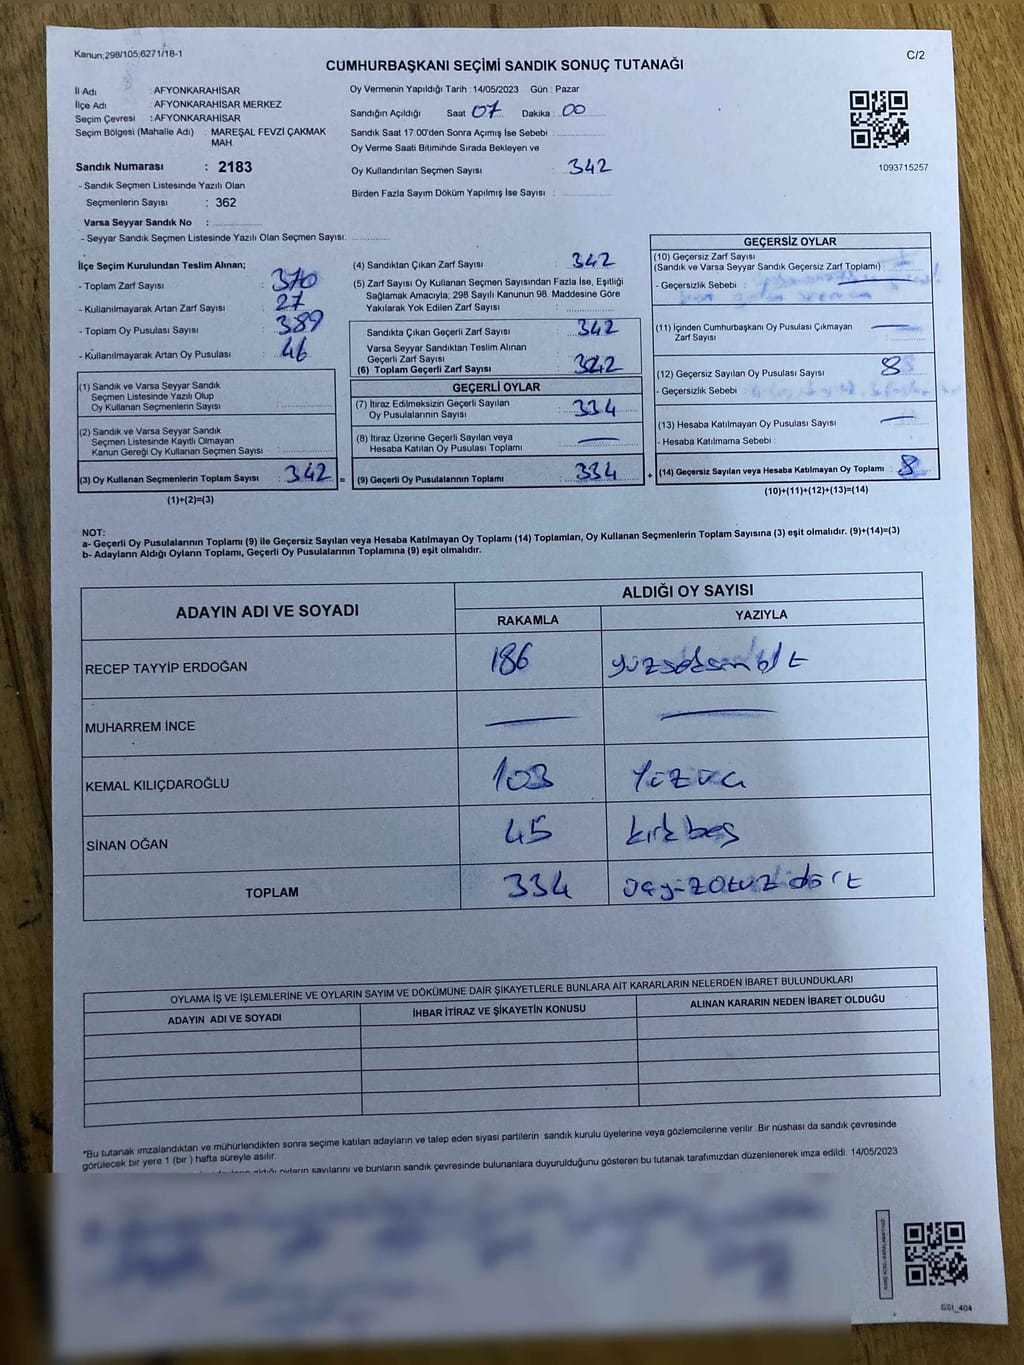 Kanun;298/105;6271/18-1
C/2
CUMHURBAŞKANI SEÇİMİ SANDIK SONUÇ TUTANAĞI
İl Adı : AFYONKARAHİSAR
İlçe Adı : AFYONKARAHİSAR MERKEZ
Seçim Çevresi : AFYONKARAHİSAR
Seçim Bölgesi (Mahalle Adı) : MAREŞAL FEVZİ ÇAKMAK
MAH.
Sandık Numarası : 2183
- Sandık Seçmen Listesinde Yazılı Olan
Seçmenlerin Sayısı : 362
Varsa Seyyar Sandık No :
- Seyyar Sandık Seçmen Listesinde Yazılı Olan Seçmen Sayısı:
Oy Vermenin Yapıldığı Tarih : 14/05/2023 Gün : Pazar
Sandığın Açıldığı Saat 07 Dakika : 00
Sandık Saat 17:00'den Sonra Açımış İse Sebebi :
Oy Verme Saati Bitiminde Sırada Bekleyen ve
Oy Kullandırılan Seçmen Sayısı : 342
Birden Fazla Sayım Döküm Yapılmış İse Sayısı :
1093715257
İlçe Seçim Kurulundan Teslim Alınan;
- Toplam Zarf Sayısı : 370
- Kullanılmayarak Artan Zarf Sayısı : 27
- Toplam Oy Pusulası Sayısı : 389
- Kullanılmayarak Artan Oy Pusulası : 46
(1) Sandık ve Varsa Seyyar Sandık
Seçmen Listesinde Yazılı Olup
Oy Kullanan Seçmenlerin Sayısı :
(2) Sandık ve Varsa Seyyar Sandık
Seçmen Listesinde Kayıtlı Olmayan
Kanun Gereği Oy Kullanan Seçmen Sayısı :
(3) Oy Kullanan Seçmenlerin Toplam Sayısı : 342
(1)+(2)=(3)
(4) Sandıktan Çıkan Zarf Sayısı : 342
(5) Zarf Sayısı Oy Kullanan Seçmen Sayısından Fazla İse, Eşitliği
Sağlamak Amacıyla, 298 Sayılı Kanunun 98. Maddesine Göre
Yakılarak Yok Edilen Zarf Sayısı :
Sandıkta Çıkan Geçerli Zarf Sayısı : 342
Varsa Seyyar Sandıktan Teslim Alınan
Geçerli Zarf Sayısı :
(6) Toplam Geçerli Zarf Sayısı : 342
GEÇERLİ OYLAR
(7) İtiraz Edilmeksizin Geçerli Sayılan
Oy Pusulalarının Sayısı : 334
(8) İtiraz Üzerine Geçerli Sayılan veya
Hesaba Katılan Oy Pusulası Toplamı :
= (9) Geçerli Oy Pusulalarının Toplamı : 334 +
GEÇERSİZ OYLAR
(10) Geçersiz Zarf Sayısı
(Sandık ve Varsa Seyyar Sandık Geçersiz Zarf Toplamı) :
- Geçersizlik Sebebi :
(11) İçinden Cumhurbaşkanı Oy Pusulası Çıkmayan
Zarf Sayısı :
(12) Geçersiz Sayılan Oy Pusulası Sayısı : 8
- Geçersizlik Sebebi :
(13) Hesaba Katılmayan Oy Pusulası Sayısı :
- Hesaba Katılmama Sebebi :
(14) Geçersiz Sayılan veya Hesaba Katılmayan Oy Toplamı : 8
(10)+(11)+(12)+(13)=(14)
NOT:
a- Geçerli Oy Pusulalarının Toplamı (9) ile Geçersiz Sayılan veya Hesaba Katılmayan Oy Toplamı (14) Toplamları, Oy Kullanan Seçmenlerin Toplam Sayısına (3) eşit olmalıdır. (9)+(14)=(3)
b- Adayların Aldığı Oyların Toplamı, Geçerli Oy Pusulalarının Toplamına (9) eşit olmalıdır.
ADAYIN ADI VE SOYADI
ALDIĞI OY SAYISI
RAKAMLA YAZIYLA
RECEP TAYYİP ERDOĞAN 186 yüzseksenaltı
MUHARREM İNCE
KEMAL KILIÇDAROĞLU 103 Yüzüç
SİNAN OĞAN 45 kırkbeş
TOPLAM 334 üçyüzotuzdört
OYLAMA İŞ VE İŞLEMLERİNE VE OYLARIN SAYIM VE DÖKÜMÜNE DAİR ŞİKAYETLERLE BUNLARA AİT KARARLARIN NELERDEN İBARET BULUNDUKLARI
ADAYIN ADI VE SOYADI İHBAR İTİRAZ VE ŞİKAYETİN KONUSU ALINAN KARARIN NEDEN İBARET OLDUĞU
*Bu tutanak imzalandıktan ve mühürlendikten sonra seçime katılan adayların ve talep eden siyasi partilerin sandık kurulu üyelerine veya gözlemcilerine verilir. Bir nüshası da sandık çevresinde
görülecek bir yere 1 (bir) hafta süreyle asılır.
aldığı oyların sayılarını ve bunların sandık çevresinde bulunanlara duyurulduğunu gösteren bu tutanak tarafımızdan düzenlenerek imza edildi. 14/05/2023
SSI_404